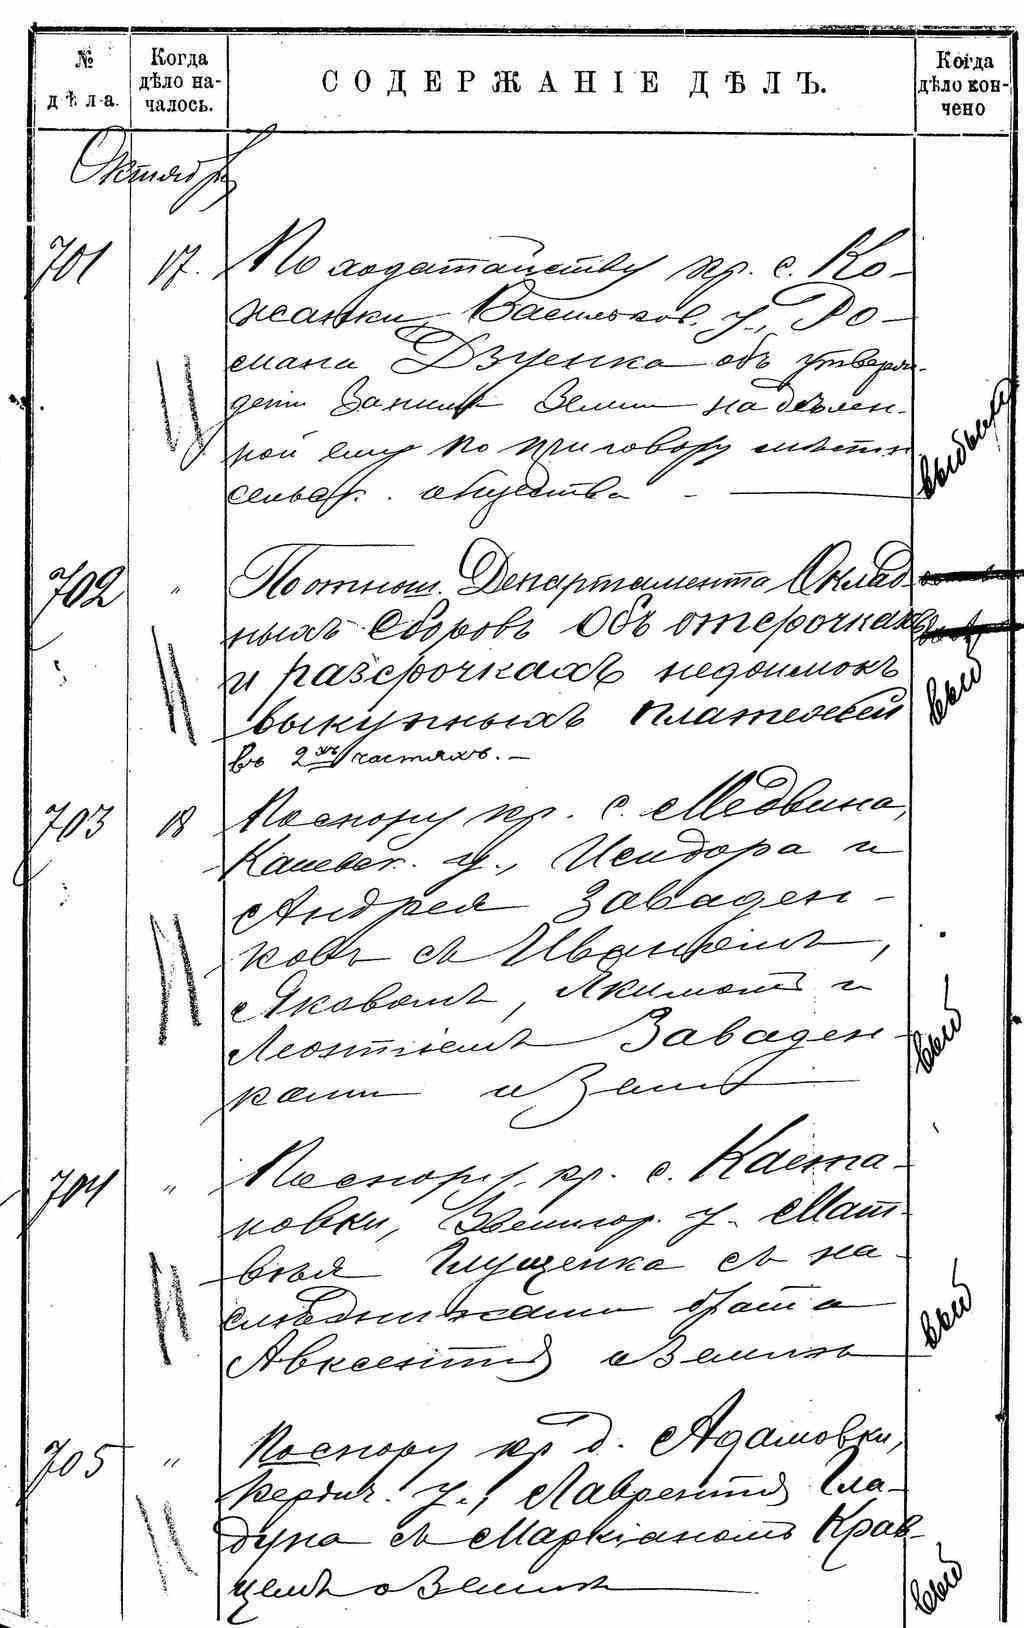 № дѣла.
Когда дѣло началось.
СОДЕРЖАНІЕ ДѢЛЪ.
Когда дѣло кончено
Октябрь
701 17. По ходатайству кр. с. Ко-
жанки Васильков. у., Ро-
мана Дзуенка объ утверж-
деніи за нимъ земли надѣлен-
ной ему по приговору мѣстн
сельск. общества
выбыло
702 " По отнош. Департамента Оклад-
ныхъ Сборовъ Объ отсрочкахъ
и разсрочкахъ недоимокъ
выкупныхъ платежей
въ 2хъ частяхъ. —
выб
703 18 По спору кр. с. Медвина,
Каневск. у., Исидора и
Андрея Заваден-
ковъ съ
Яковомъ, Якимомъ и
Леонтіемъ Заваден-
ками о земл
выб
704 " По спору кр. с. Каста-
новки, Звенигор. у. Мат-
вѣя Глущенка съ на-
слѣдниками брата
Авксентія о землѣ
выб
705 " По спору кр д. Адамовки,
Бердич. у., Лаврентія Гла-
дуна съ Маркіаномъ Крав-
цемъ о землѣ
выб